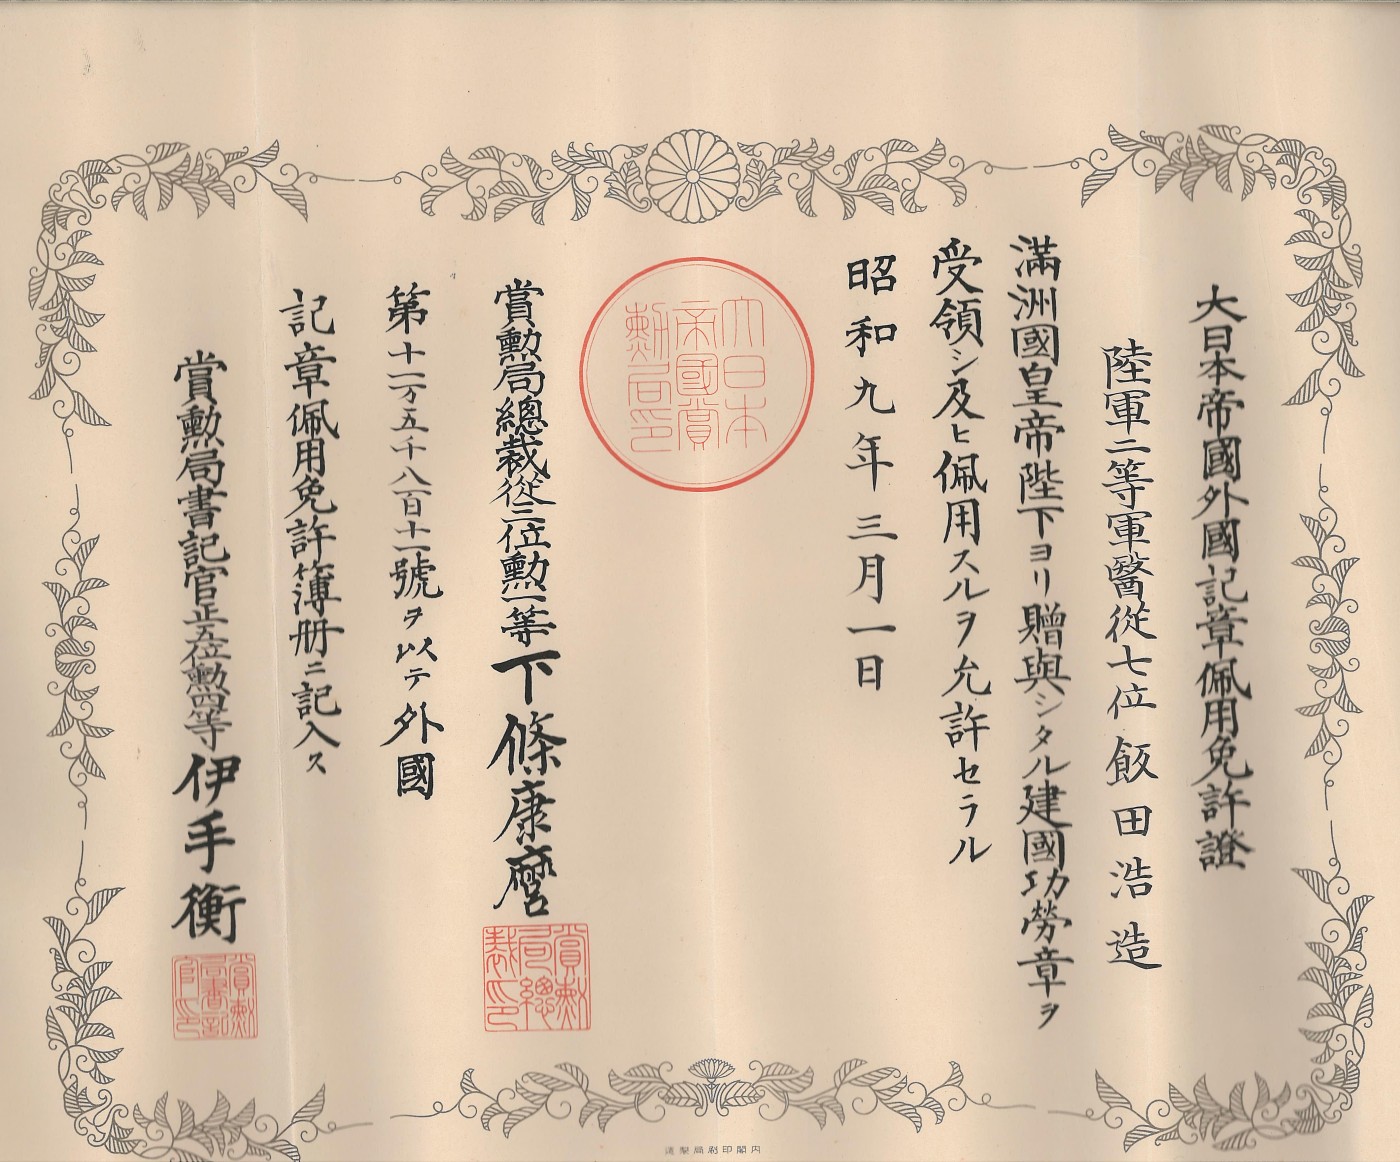 大日本帝國外國記章佩用免許證
陸軍二等軍醫從七位飯田浩造
滿洲國皇帝陛下ヨリ贈與シタル建國功勞章ヲ
受領シ及ヒ佩用スルヲ允許セラル
昭和九年三月一日
大日本
帝國賞
勲局印
賞勲局總裁從三位勲一等下條康麿
賞勲
局總
裁印
第十一万五千八百十一號ヲ以テ外國
記章佩用免許簿册ニ記入ス
賞勲局書記官正五位勲四等伊手衡
賞勲
局書記
官印
內閣印刷局製造